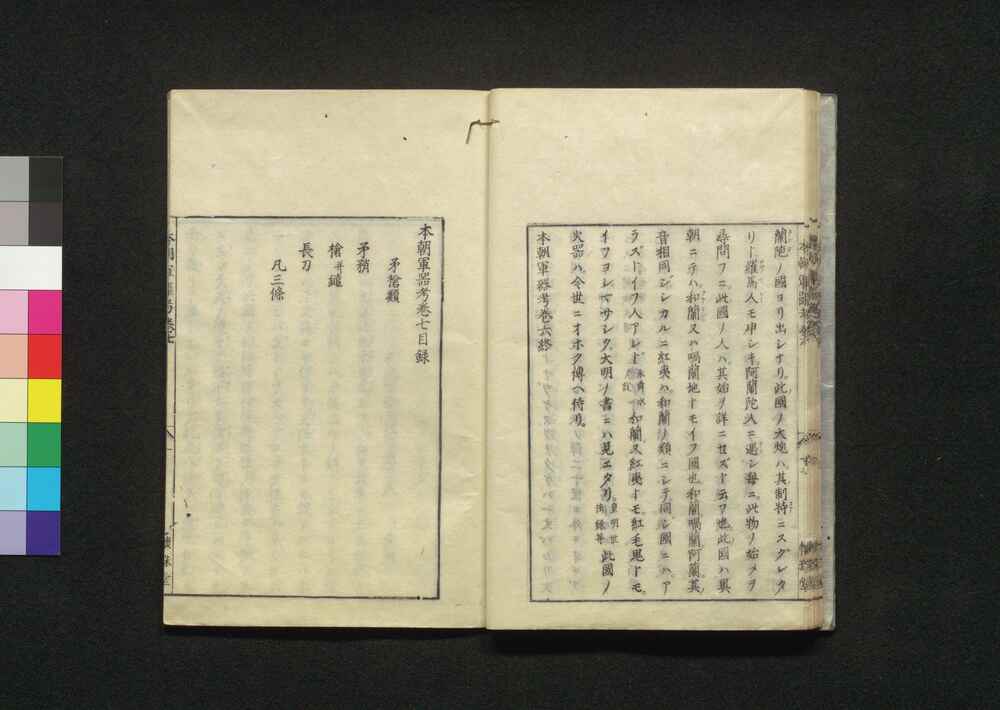 蘭陀ノ國ヨリ出シナリ。此國ノ大炮ハ其制特ニスグレタ
リト羅馬人モ申シキ。阿蘭陀人ニ遇シ毎ニ。此物ノ始メヲ
尋問フニ。此國ノ人ハ其始ヲ詳ニセズト云フ也。此國ハ異
朝ニテハ和蘭又ハ喎蘭地トモイフ國也。和蘭喎蘭阿蘭其
音相同ジシカルニ紅夷ハ。和蘭ノ類ニシテ同シ國ニハア
ラズトイフ人アレド。和蘭又紅夷トモ紅毛鬼トモ。
イフヨシヤサシク。大明ノ書ニハ見エタリ。皇明世法録等此國ノ
火器ハ。今世ニオホク博ヘ侍リ。
本朝軍器考卷六終
本朝軍器考卷七目録
矛槍類
矛矟
槍并鑓
長刀
凡三條